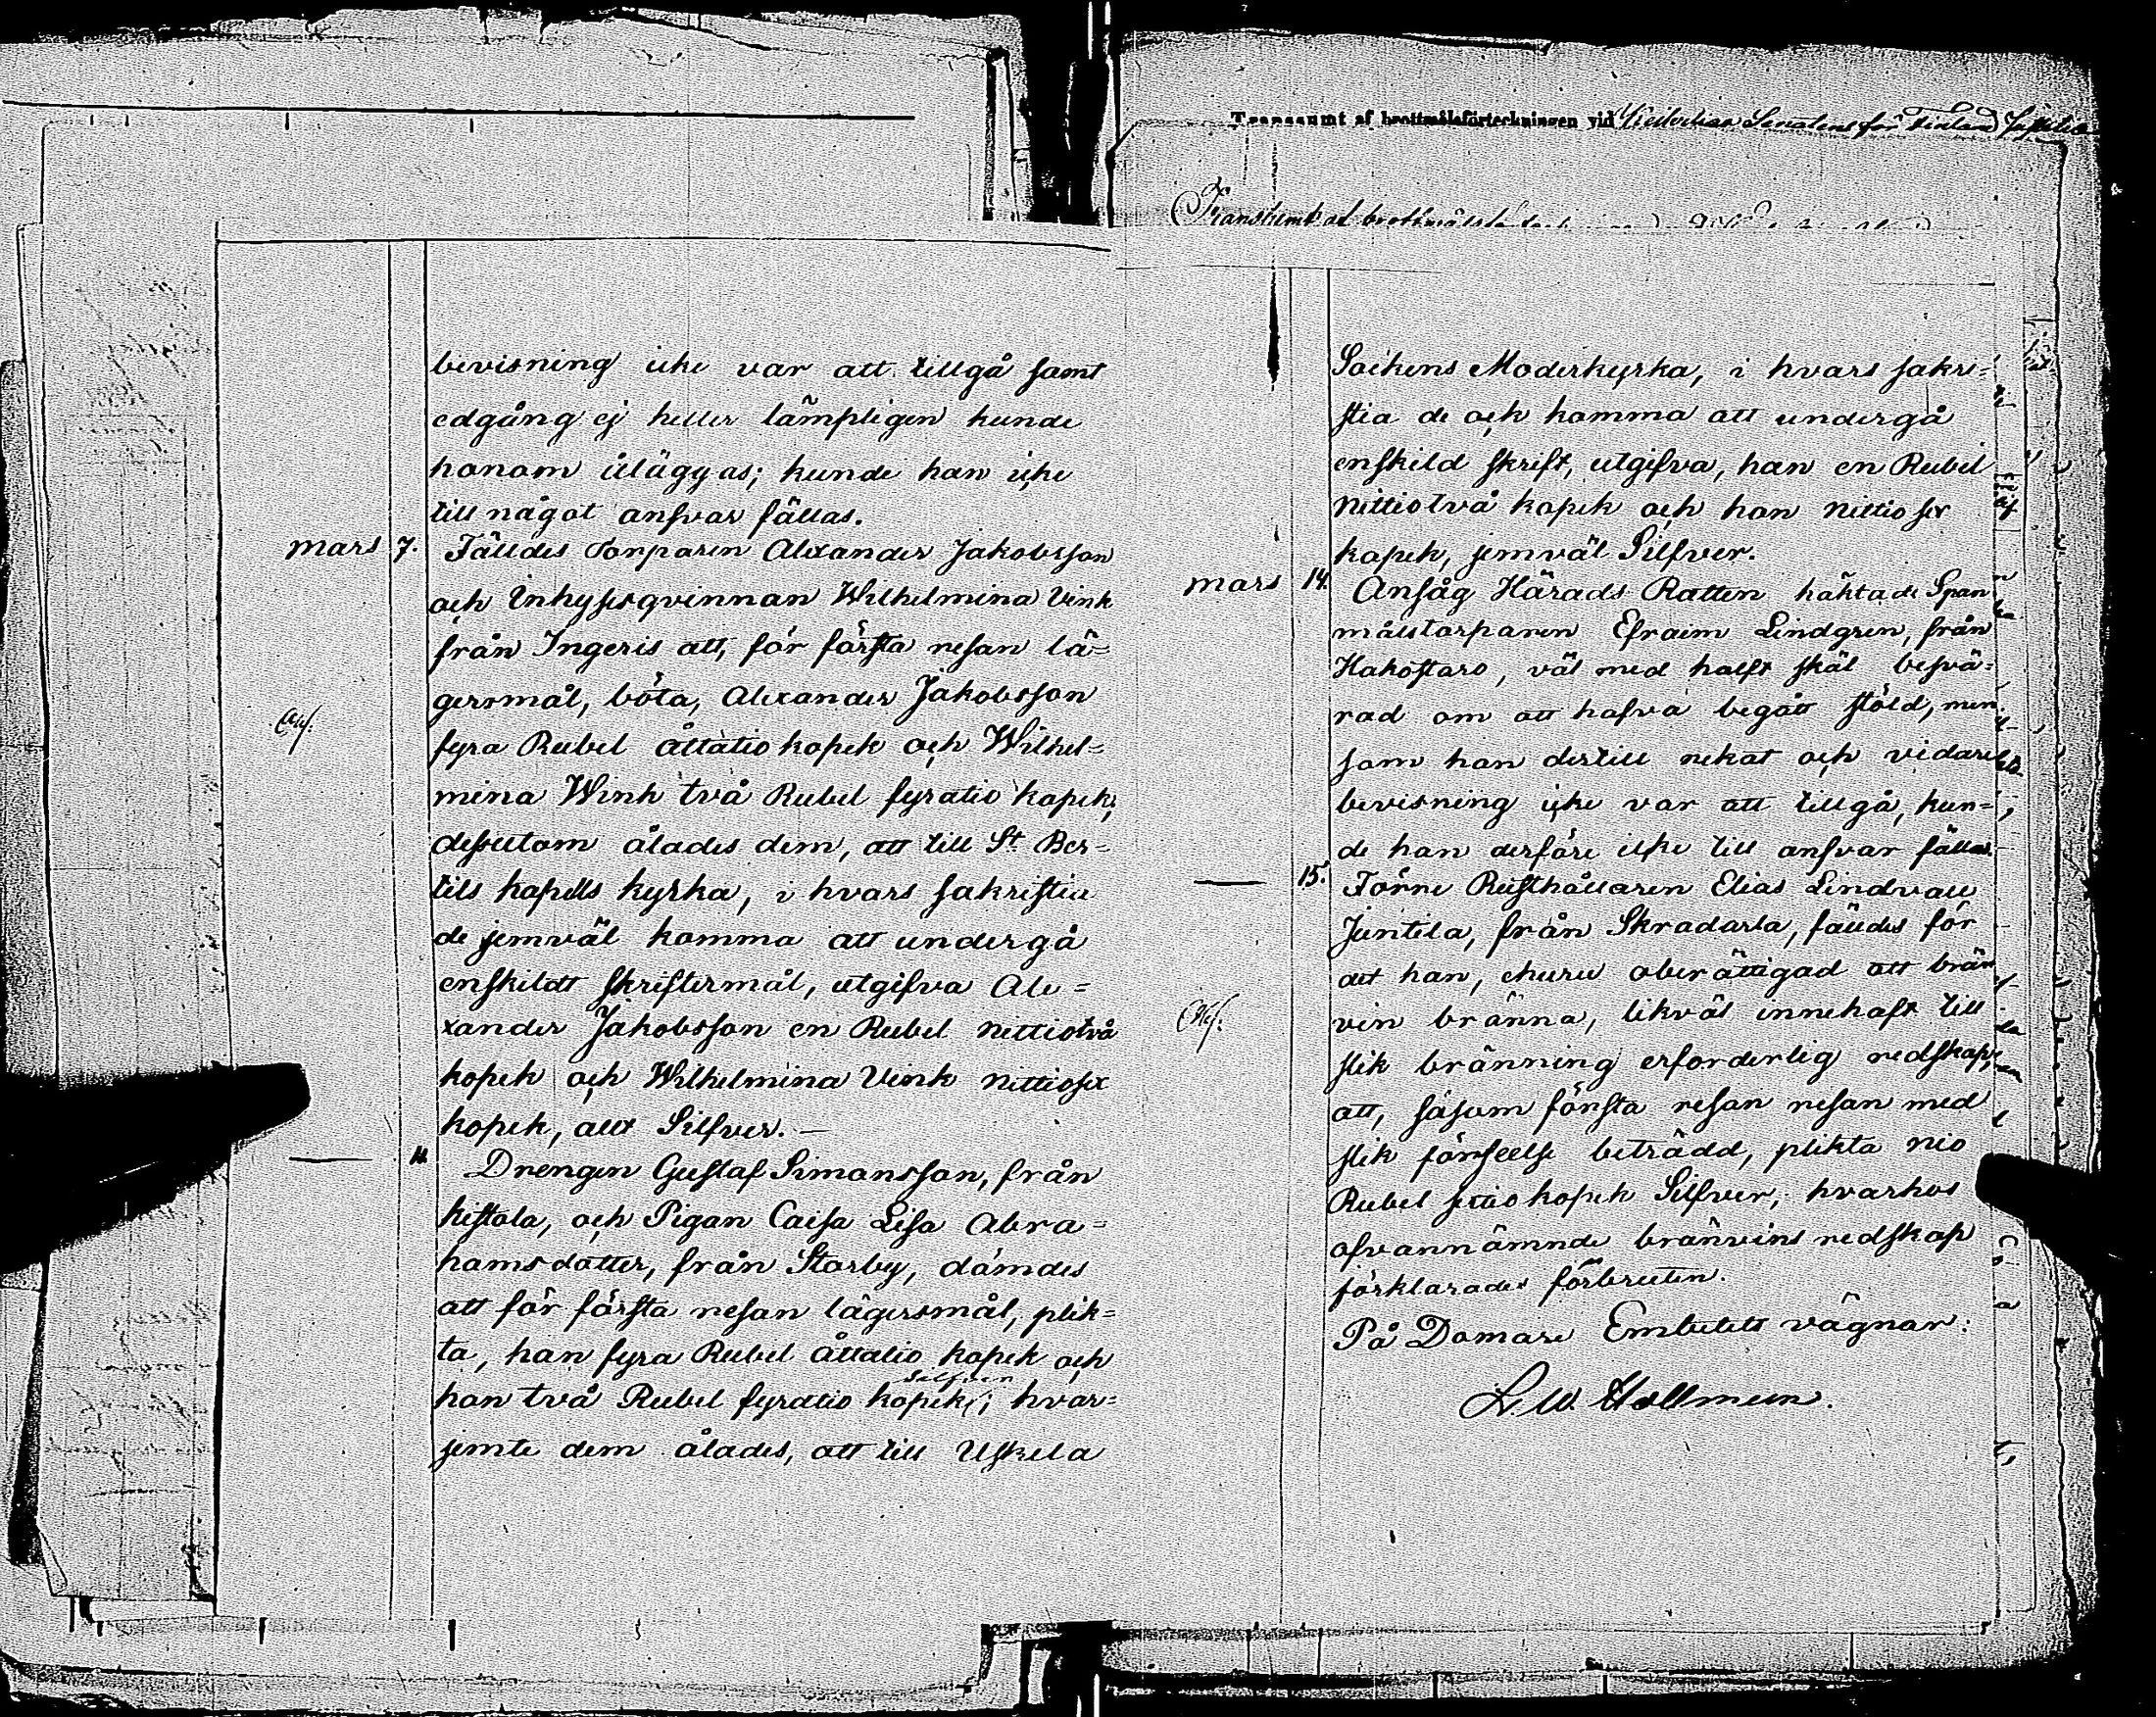 bevisning icke var att tillgå samt
edgång ej heller lämpligen kunde
honom åläggas; kunde han icke
till något ansvar fällas.
Mars 7. Fälldes Torparen Alexander Jakobsson
och Inhysesqvinnan Wilhelmina Vink
från Ingeris att, för första resan lä-
gersmål, böta, Alexander Jakobsson
fyra Rubel åttatio kopek och Wilhel-
mina Wink två Rubel fyratio kopek;
dessutom ålades dem, att till St. Ber-
tils kapells kyrka, i hvars sakristia
de jemväl komma att undergå
enskildt skriftermål, utgifva Ale-
xander Jakobsson en Rubel nettiotvå
kopek och Wilhelmina Vink nettiosex
kopek, allt Silfver. —
— 14. Drengen Gustaf Simonsson, från
Kistola, och Pigan Caisa Lisa Abra-
hamsdotter, från Storby, dömdes
att för första resan lägersmål, plik-
ta, han fyra Rubel åttatio kopek och
hon två Rubel fyratio kopek silfver; hvar-
jemte dem ålades, att till Uskela
Transsumt af brottmålsförteckningen vid Kejserliga Senatens för Finland Justitie
Transsumt af
Sockens Moderkyrka, i hvars sakri-
stia de ock komma att undergå
enskild skrift, utgifva, han en Rubel
nittiotvå kopek och hon nittiosex
kopek, jemväl Silfver.
Mars 14. Ansåg Härads Rätten häktade Span
målstorparen Efraim Lindgren, från
Hakostaro, väl med halft skäl besvä-
rad om att hafva begått stöld, men
som han dertill nekat och vidare
bevisning icke var att tillgå, kun-
de han derföre icke till ansvar fällas.
— 15. Förre Rusthållaren Elias Lindvall
Juntila, från Skradarla, fälldes för
det han, ehuru oberättigad att brän
vin bränna, likväl innehaft till
slik bränning erforderlig redskap,
att, såsom första resan resan med
slik förseelse beträdd, plikta nio
Rubel sextio kopek Silfver, hvarhos
ofvannämnde bränvins redskap
förklarades förbruten.
På Domare Embetets vägnar: